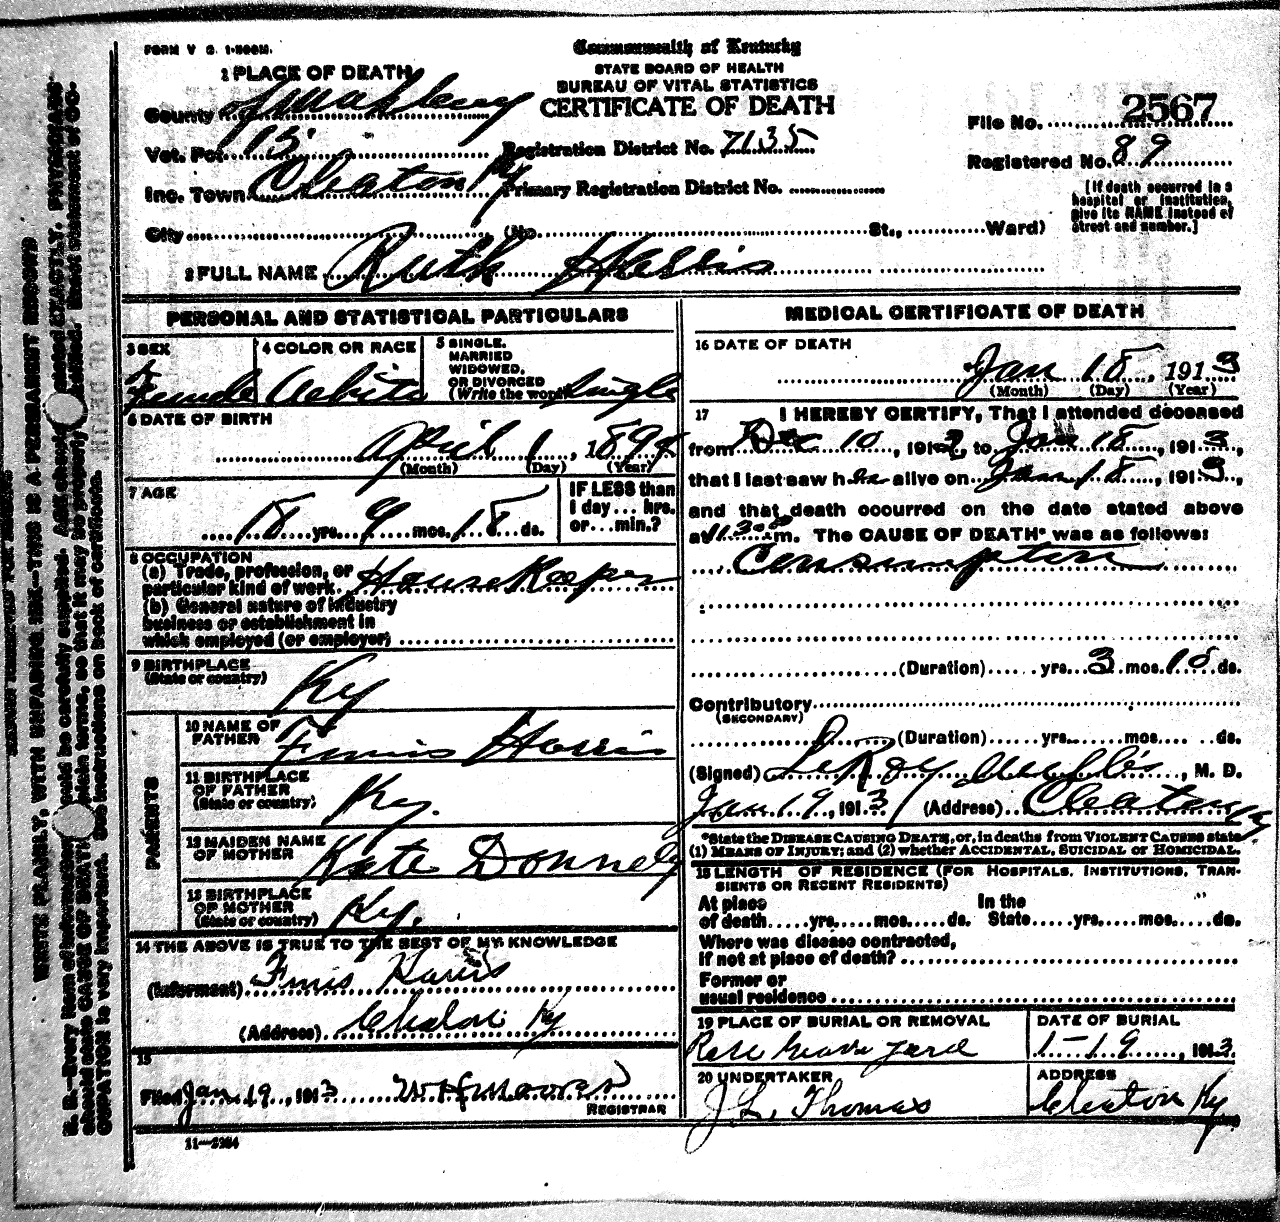 FORM V S. 1-500M.
Commonwealth of Kentucky
STATE BOARD OF HEALTH
BUREAU OF VITAL STATISTICS
CERTIFICATE OF DEATH
1 PLACE OF DEATH
County of
Vot. Pct. 13
Inc. Town Cleaton Ky
City (No. St., Ward)
Registration District No. 7135
Primary Registration District No.
File No. 2567
Registered No. 89
[If death occurred in a
hospital or institution,
give its NAME instead of
street and number.]
2 FULL NAME Ruth Harris
PERSONAL AND STATISTICAL PARTICULARS
3 SEX
Female
4 COLOR OR RACE
White
5 SINGLE,
MARRIED
WIDOWED,
OR DIVORCED
(Write the word) Single
6 DATE OF BIRTH
April 1, 1894
(Month) (Day) (Year)
7 AGE
18 yrs. 9 mos. 18 ds.
IF LESS than
1 day... hrs.
or...min.?
8 OCCUPATION
(a) Trade, profession, or
particular kind of work. House Keeper
(b) General nature of industry
business or establishment in
which employed (or employer)
9 BIRTHPLACE
(State or country)
Ky
PARENTS
10 NAME OF
FATHER
Finis Harris
11 BIRTHPLACE
OF FATHER
(State or country)
Ky.
12 MAIDEN NAME
OF MOTHER
Kate Donnely
13 BIRTHPLACE
OF MOTHER
(State or country)
Ky.
14 THE ABOVE IS TRUE TO THE BEST OF MY KNOWLEDGE
(Informant) Finis Harris
(Address) Cleaton Ky
15
Filed Jan. 19, 1913 W H Moores
REGISTRAR
11—2384
MEDICAL CERTIFICATE OF DEATH
16 DATE OF DEATH
Jan 18, 1913
(Month) (Day) (Year)
17 I HEREBY CERTIFY, That I attended deceased
from Dec 10, 1912, to Jan 18, 1913,
that I last saw her alive on Jan 18, 1913,
and that death occurred on the date stated above
at m. The CAUSE OF DEATH* was as follows:
Consumpton
(Duration) yrs. 3 mos. ds.
Contributory
(SECONDARY)
(Duration) yrs. mos. ds.
(Signed) LeRoy , M. D.
Jan 19, 1913 (Address) Cleaton Ky
*State the DISEASE CAUSING DEATH, or, in deaths from VIOLENT CAUSES state
(1) MEANS OF INJURY; and (2) whether ACCIDENTAL, SUICIDAL or HOMICIDAL.
18 LENGTH OF RESIDENCE (FOR HOSPITALS, INSTITUTIONS, TRAN-
SIENTS OR RECENT RESIDENTS)
At place In the
of death yrs. mos. ds. State yrs. mos. ds.
Where was disease contracted,
if not at place of death?
Former or
usual residence
19 PLACE OF BURIAL OR REMOVAL
Grave yard
DATE OF BURIAL
1-19, 1913
20 UNDERTAKER
J L. Thomas
ADDRESS
Cleaton Ky
WRITE PLAINLY, WITH UNFADING INK—THIS IS A PERMANENT RECORD
N. B.—Every item of information should be carefully supplied. AGE should be stated EXACTLY. PHYSICIANS
should state CAUSE OF DEATH in plain terms, so that it may be properly classified. Exact statement of OC-
CUPATION is very important. See instructions on back of certificate.